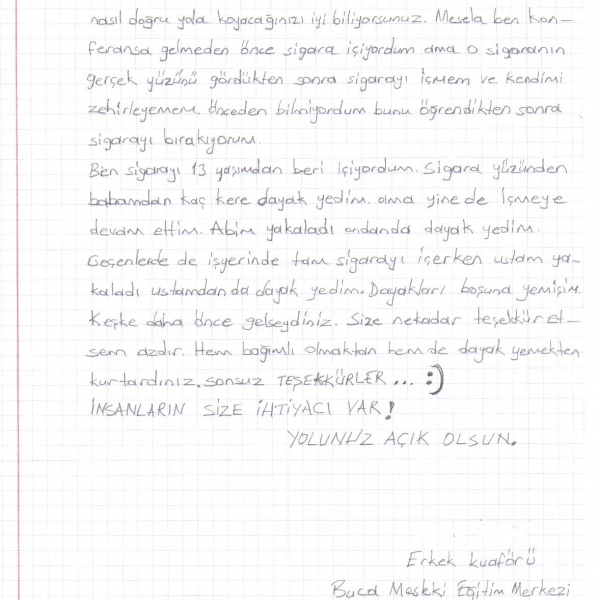 nasıl doğru yola koyacağınızı iyi biliyorsunuz. Mesela ben kon-
feransa gelmeden önce sigara içiyordum ama o sigaranın
gerçek yüzünü gördükten sonra sigarayı içmem ve kendimi
zehirleyemem. önceden bilmiyordum bunu öğrendikten sonra
sigarayı bırakıyorum.
Ben sigarayı 13 yaşımdan beri içiyordum. Sigara yüzünden
babamdan kaç kere dayak yedim. ama yine de içmeye
devam ettim. Abim yakaladı ondanda dayak yedim.
Geçenlerde de işyerinde tam sigarayı içerken ustam ya-
kaladı ustamdan da dayak yedim. Dayakları boşuna yemişim.
Keşke daha önce gelseydiniz. Size nekadar teşekkür et-
sem azdır. Hem bağımlı olmaktan hem de dayak yemekten
kurtardınız. sonsuz TEŞEKKÜRLER ... :)
İNSANLARIN SİZE İHTİYACI VAR!
YOLUNUZ AÇIK OLSUN.
Erkek kuaförü
Buca Mesleki Eğitim Merkezi